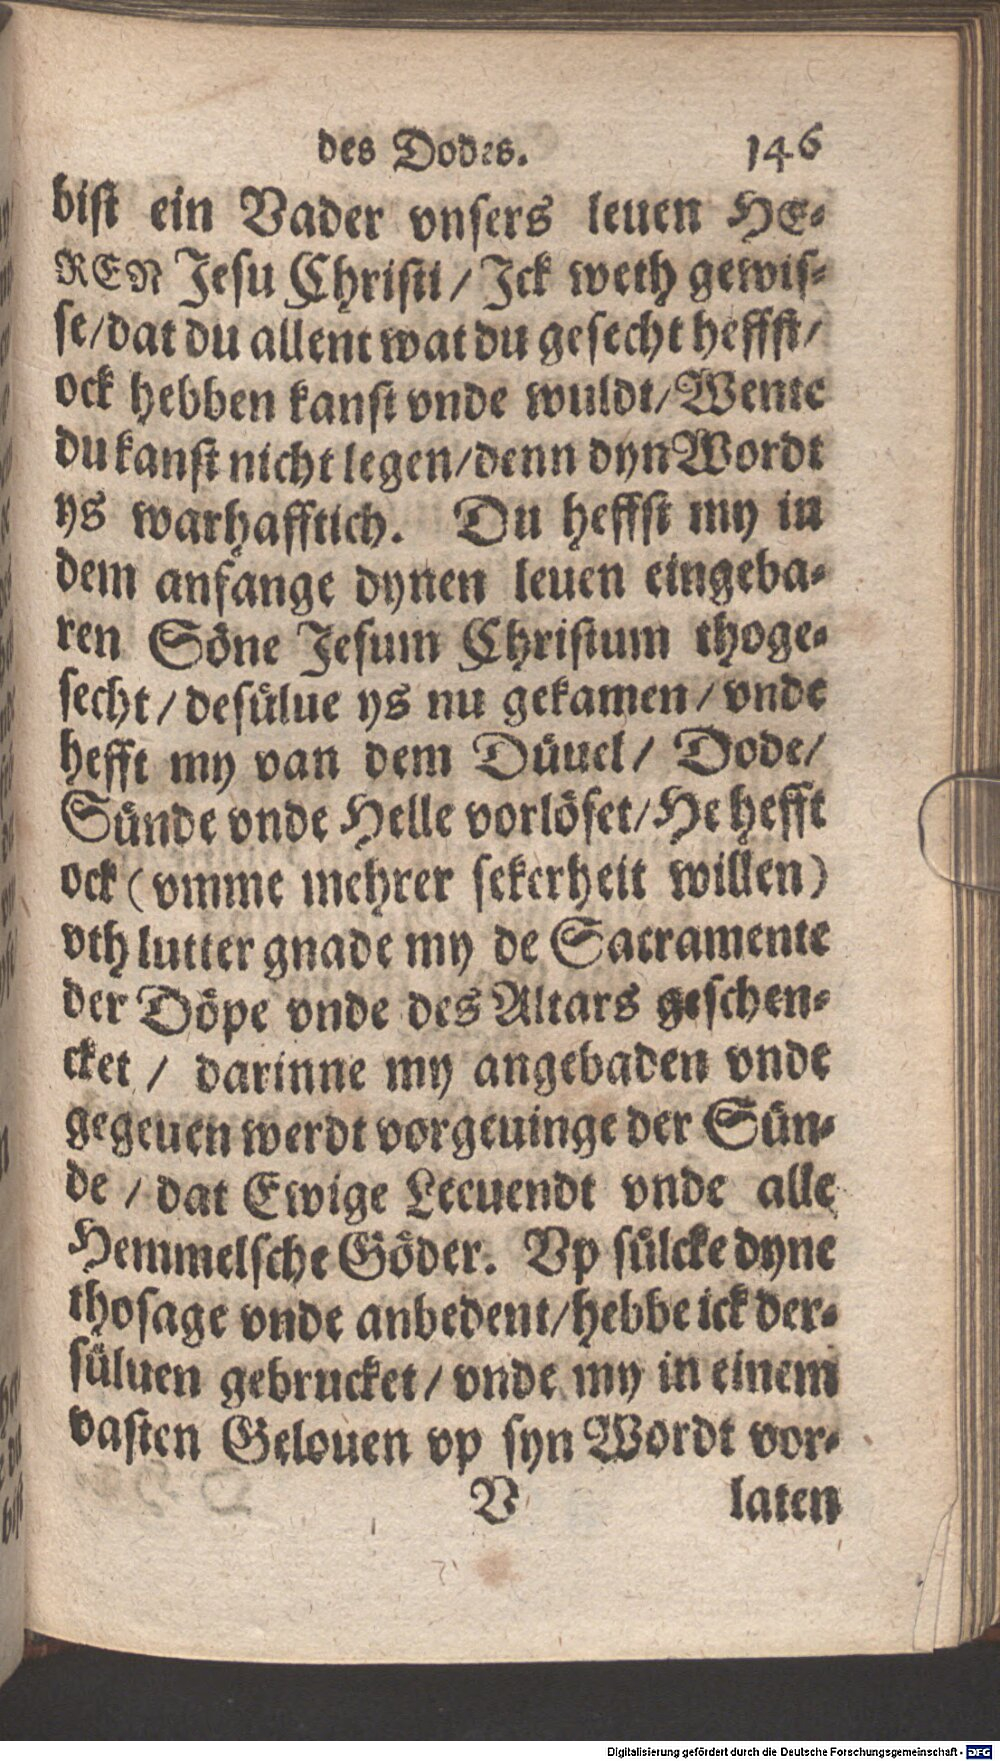 des Dodes. 146
bist ein Vader vnsers leuen HE-
REN Jesu Christi / Jck weth gewis-
se/dat du allent wat du gesecht heffst/
ock hebben kanst vnde wuldt/Wente
du kanst nicht legen/denn dyn Wordt
ys warhafftich. Du heffst my in
dem anfange dynen leuen eingeba-
ren Söne Jesum Christum thoge-
secht / desülue ys nu gekamen / vnde
hefft my van dem Düuel / Dode/
Sünde vnde Helle vorlöset/He hefft
ock (vmme mehrer sekerheit willen)
vth lutter gnade my de Sacramente
der Döpe vnde des Altars geschen-
cket / darinne my angebaden vnde
gegeuen werdt vorgeuinge der Sün-
de / dat Ewige Leeuendt vnde alle
Hemmelsche Göder. Vp sülcke dyne
thosage vnde anbedent/hebbe ick der-
süluen gebrucket / vnde my in einem
vasten Gelouen vp syn Wordt vor-
V laten
Digitalisierung gefördert durch die Deutsche Forschungsgemeinschaft - DFG